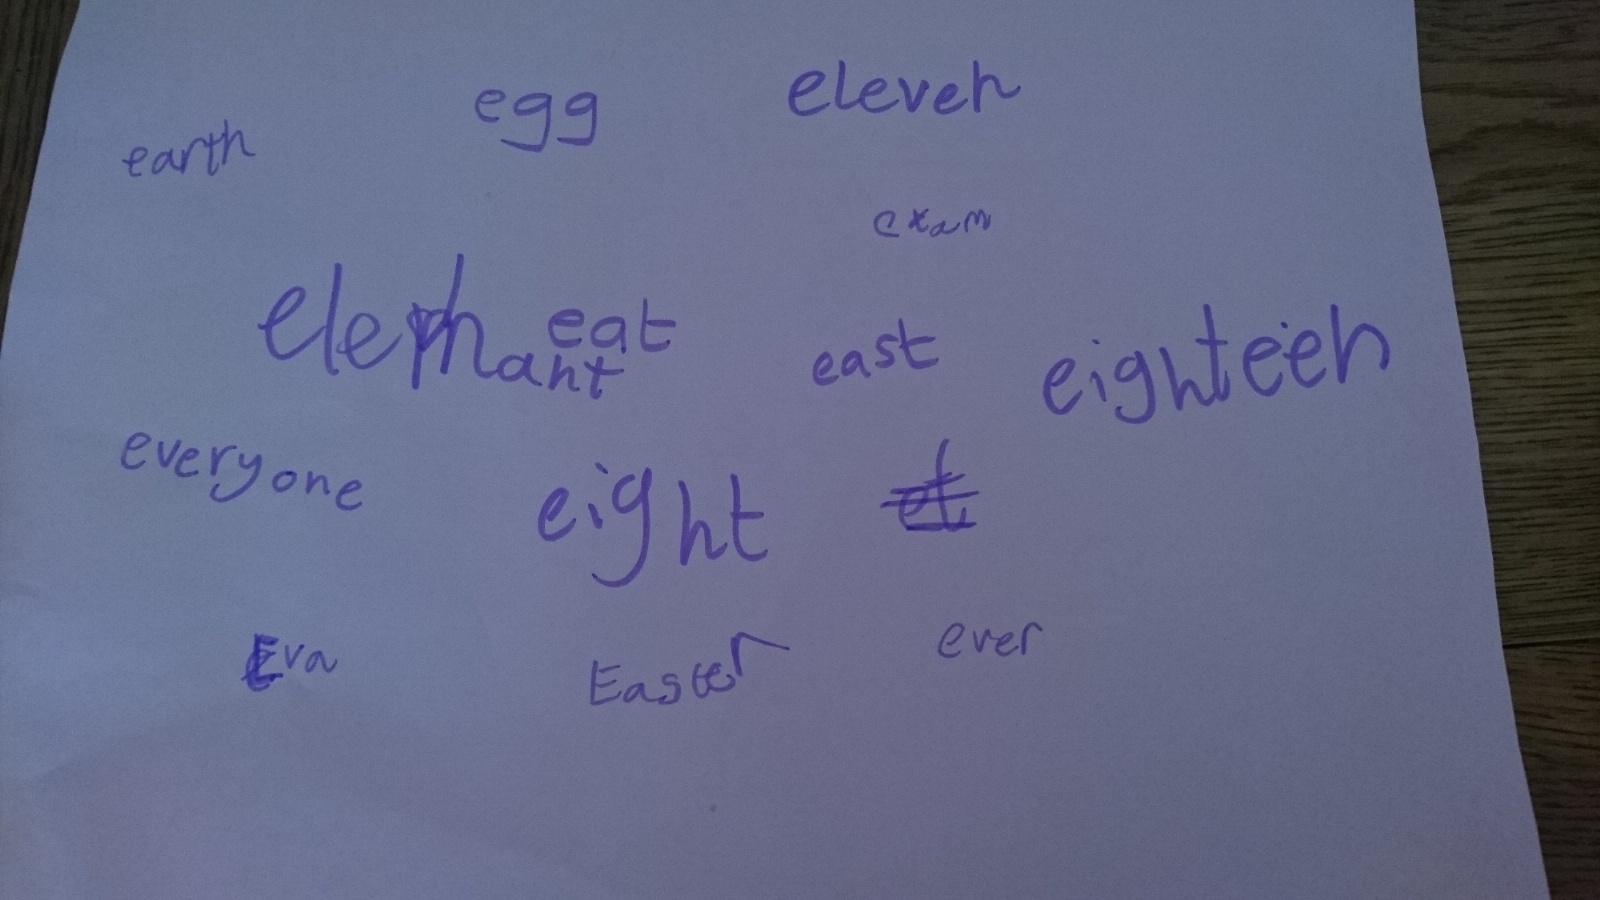 egg eleven
earth
exam
elephant eat east eighteen
everyone
eight
Eva Easter ever